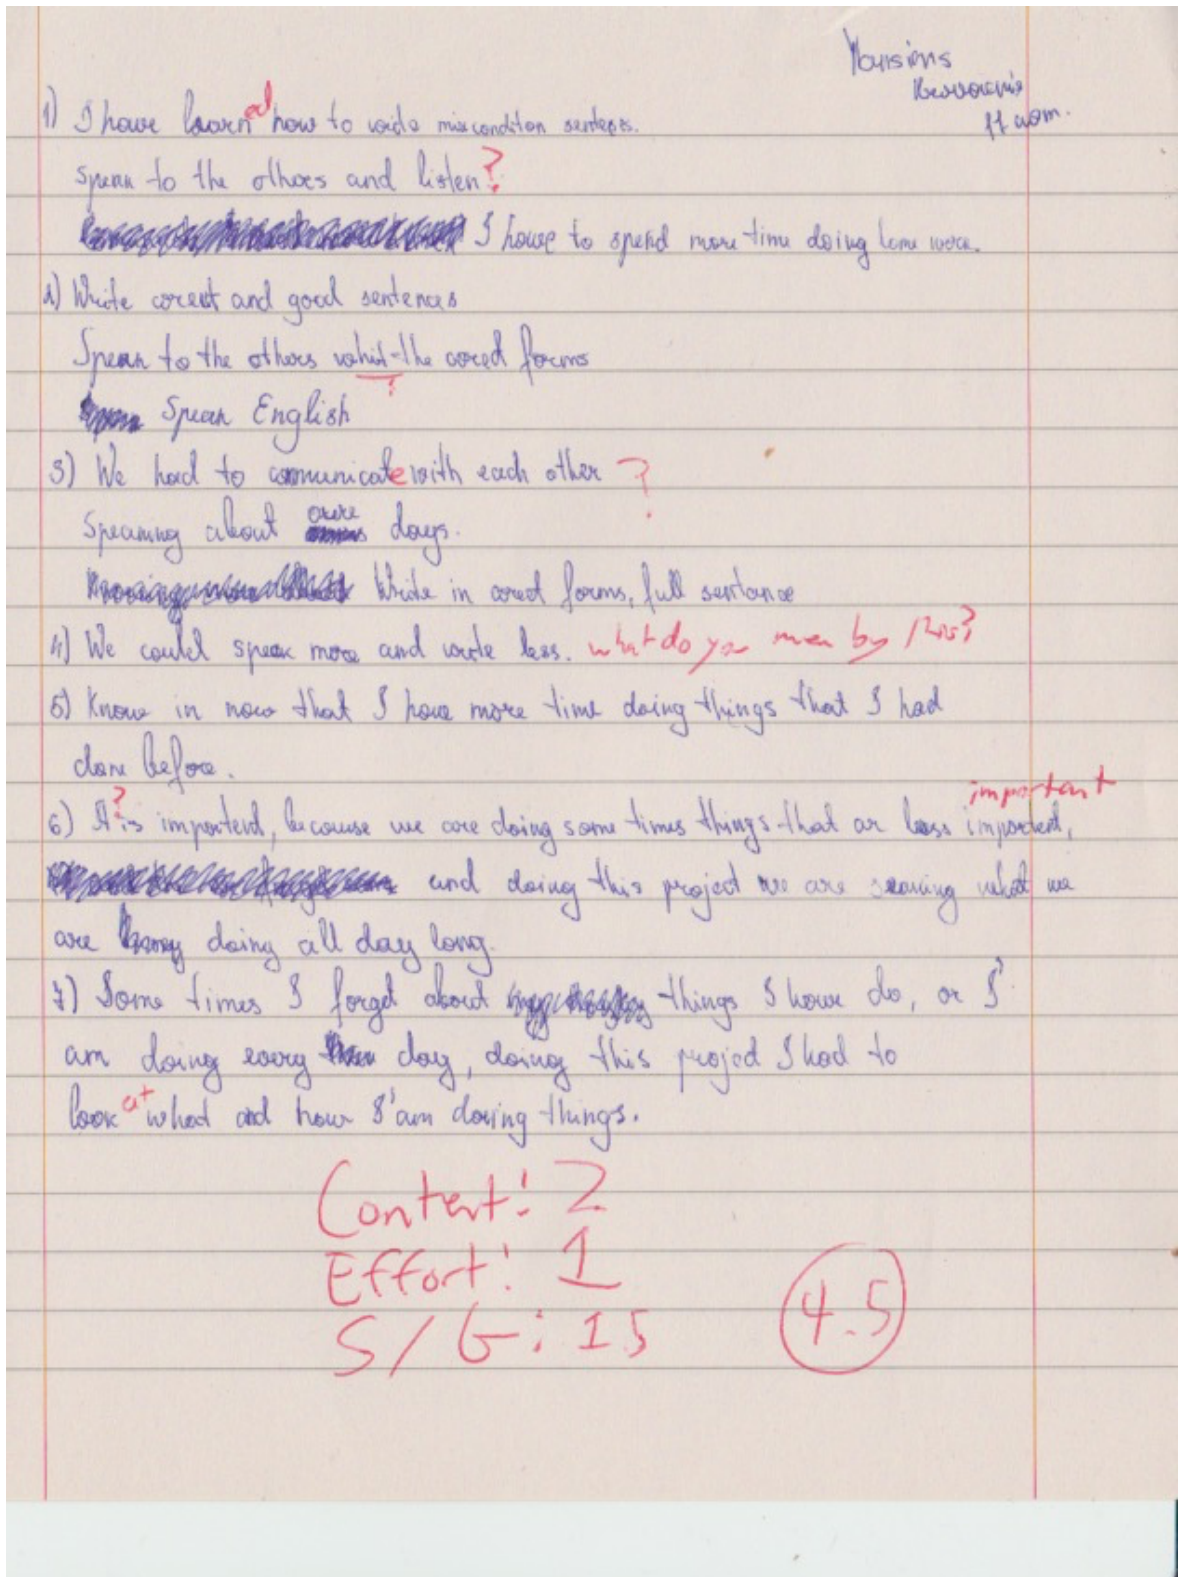 1) I have learned how to write mixcondition sentences.
Speak to the others and listen?
I have to spend more time doing home work.
2) Write corect and good sentences
Speak to the others the corect forms
?
Speak English
3) We had to communicate with each other ?
Speaking about days.
Write in corect forms, full sentence
4) We could speak more and write less. what do you mean by this?
5) Know in now that I have more time doing things that I had
done before.
important
6) It is important, because we are doing some times things that ar less important,
and doing this project we are what we
are doing all day long.
7) Some times I forget about things I have do, or I'
am doing every day, doing this project I had to
look at what and how I'am doing things.
Content: 2
Effort: 1
S/G: 1.5
4.5